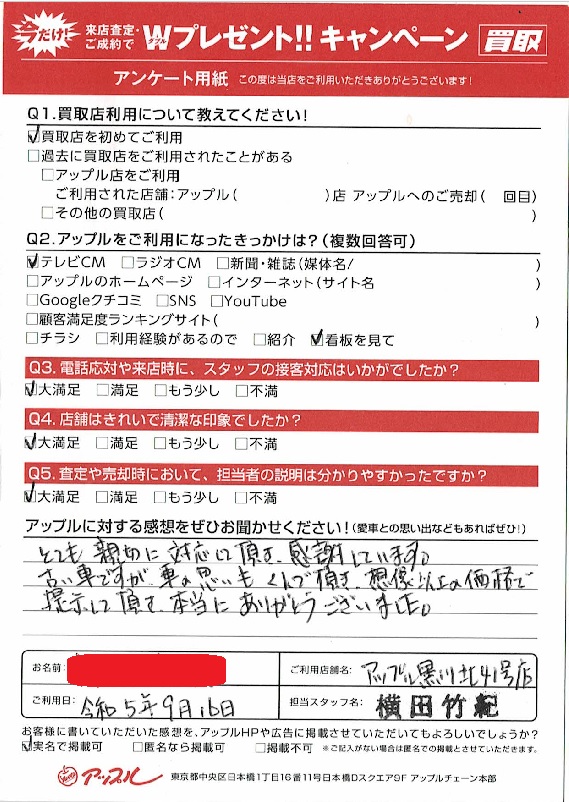 今だけ! 来店査定・ご成約で Wプレゼント!! キャンペーン 買取
アンケート用紙 この度は当店をご利用いただきありがとうございます!
Q1.買取店利用について教えてください!
☑買取店を初めてご利用
□過去に買取店をご利用されたことがある
□アップル店をご利用
ご利用された店舗:アップル( )店 アップルへのご売却( 回目)
□その他の買取店( )
Q2.アップルをご利用になったきっかけは?(複数回答可)
☑テレビCM □ラジオCM □新聞・雑誌(媒体名/ )
□アップルのホームページ □インターネット(サイト名 )
□Googleクチコミ □SNS □YouTube
□顧客満足度ランキングサイト( )
□チラシ □利用経験があるので □紹介 ☑看板を見て
Q3. 電話応対や来店時に、スタッフの接客対応はいかがでしたか?
☑大満足 □満足 □もう少し □不満
Q4. 店舗はきれいで清潔な印象でしたか?
☑大満足 □満足 □もう少し □不満
Q5. 査定や売却時において、担当者の説明は分かりやすかったですか?
☑大満足 □満足 □もう少し □不満
アップルに対する感想をぜひお聞かせください!(愛車との思い出などもあればぜひ!)
とても親切に対応して頂き、感謝しています。
古い車ですが車の思いもくんで頂き、想像以上の価格で
提示して頂き、本当にありがとうございました。
お名前: ご利用店舗名: アップル黒川北41号店
ご利用日: 令和5年9月16日 担当スタッフ名: 横田竹紀
お客様に書いていただいた感想を、アップルHPや広告に掲載させていただいてもよろしいでしょうか?
☑実名で掲載可 □匿名なら掲載可 □掲載不可 ※ご記入がない場合は匿名での掲載とさせていただきます。
アップル 東京都中央区日本橋1丁目16番11号日本橋Dスクエア9F アップルチェーン本部